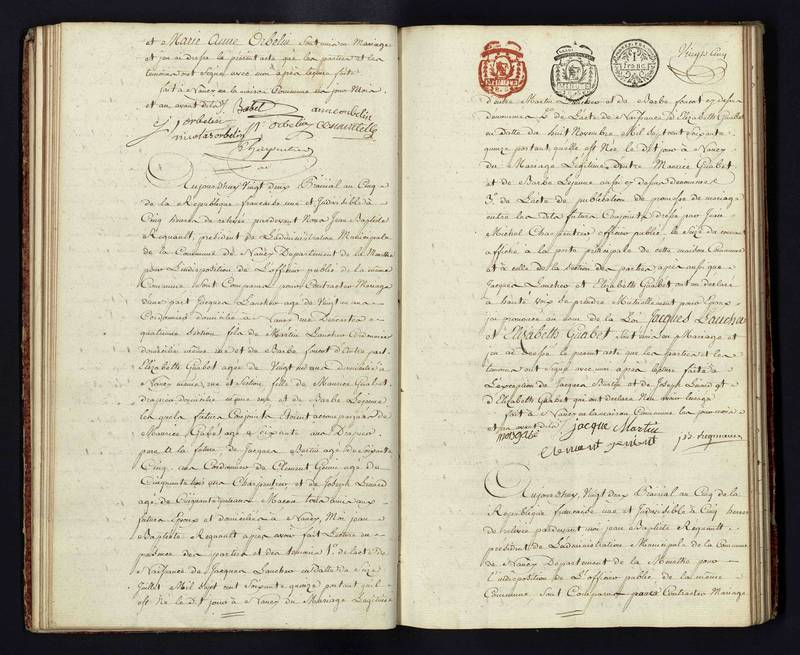 et Marie Anne Orbelin sont unis en Mariage
et j'ai redigé le présent acte que les parties et les
temoins ont signé avec moi après lecture faite
fait à Nancy en la maison Commune les jour Mois
et an avant dits
Babel anneorbelin
j orbelin
nicolas orbelin orbelin
Charpentier
Aujourdhuy Vingt deux Prairial an Cinq
de la Republique francaise une et Indivisible à
Cinq heures de relevée pardevant Nous Jean Baptiste
Regnault, président de L'administration Municipale
de la Commune de Nancy Departement de la Meurthe
pour L'indisposition de L'officier public de la même
Commune sont Comparus pour Contracter Mariage
d'une part Jacques Lancher age de Vingt un ans
Cordonnier domicilié à Nancy rue Descartes
quatrieme section fils de Martin Lancher Cordonnier
domicilié même rue et de Barbe foinot d'autre part
Elizabeth Guabot age de Vingt un ans domiciliée à
Nancy même rue et section, fille de Maurice Guabot
drapier domicilié même rue et de Barbe Lejeune
les quels futurs Conjoints etoient accompagnés de
Maurice Guabot age de soixante ans Drapier
pere de la future de Jacques Bertin age de soixante
Cinq ans Cordonnier de Clement Genne age de
Cinquante trois ans Charpentier et de Joseph Linard
age de Cinquante quatre ans Macon tous amis aux
futurs Epoux et domiciliés à Nancy, Moi jean
Baptiste Regnault après avoir fait Lecture en
présence des parties et des temoins 1° de l'acte de
Naissance de Jacques Lancher en datte du Seize
Juillet Mil Sept cent Soixante quinze portant quil
est né le dt jour à Nancy du Mariage Legitime
1 franc
Vingt Cinq
d'entre Martin Lancher et de Barbe foinot cy dessus
denommés 2° de L'acte de Naissance d'Elizabeth Guabot
en datte du huit Novembre Mil Sept cent soixante
quinze portant, quelle est Née le dt jour à Nancy
du Mariage Legitime d'entre Maurice Guabot
et de Barbe Lejeune aussi cy dessus denommés
3° de L'acte de publication de promesse de mariage
entre les dits futurs Conjoints dressé par Jean
Michel Charpentier officier public le Seize du courant
affiché à la porte principale de cette maison Commune
et à celle de la section des parties après aussi que
Jacques Lancher et Elizabeth Guabot ont eu declaré
à haute voix se prendre Mutuellement pour Epoux
j'ai prononcé au nom de la Loi Jacques Lancher
et Elizabeth Guabot sont unis en Mariage et
j'ai redigé le present acte que les parties et les
temoins ont signé avec moi après lecture faite à
L'exception de Jacques Bertin et de Joseph Linard et
d'Elizabeth Guabot qui ont declaré Non avoir l'usage
fait à Nancy en la maison Commune les jour mois
et an avant dits
jacque Martin
clement genent
Aujourdhuy Vingt deux Prairial an Cinq de la
Republique francaise une et Indivisible à Cinq heures
de relevée pardevant moi jean Baptiste Regnault
président de L'administration Municipale de la Commune
de Nancy Departement de la Meurthe pour
L'indisposition de L'officier public de la même
Commune sont Comparus pour Contracter Mariage